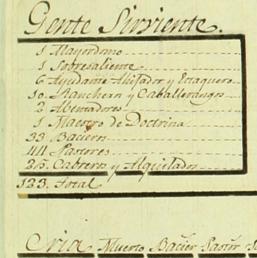 Gente Sirviente.
1 Mayordomo
1 Sobresaliente
6 Ayudante Ahijador y Estaquero
10 Rancheros y Caballerangos
2 Ahentadores
1 Maestro de Doctrina
33 Bacieros
44 Pastores
25 Cabreros y Alquilados
123. Total
Cria Muerto Bacier Pastor